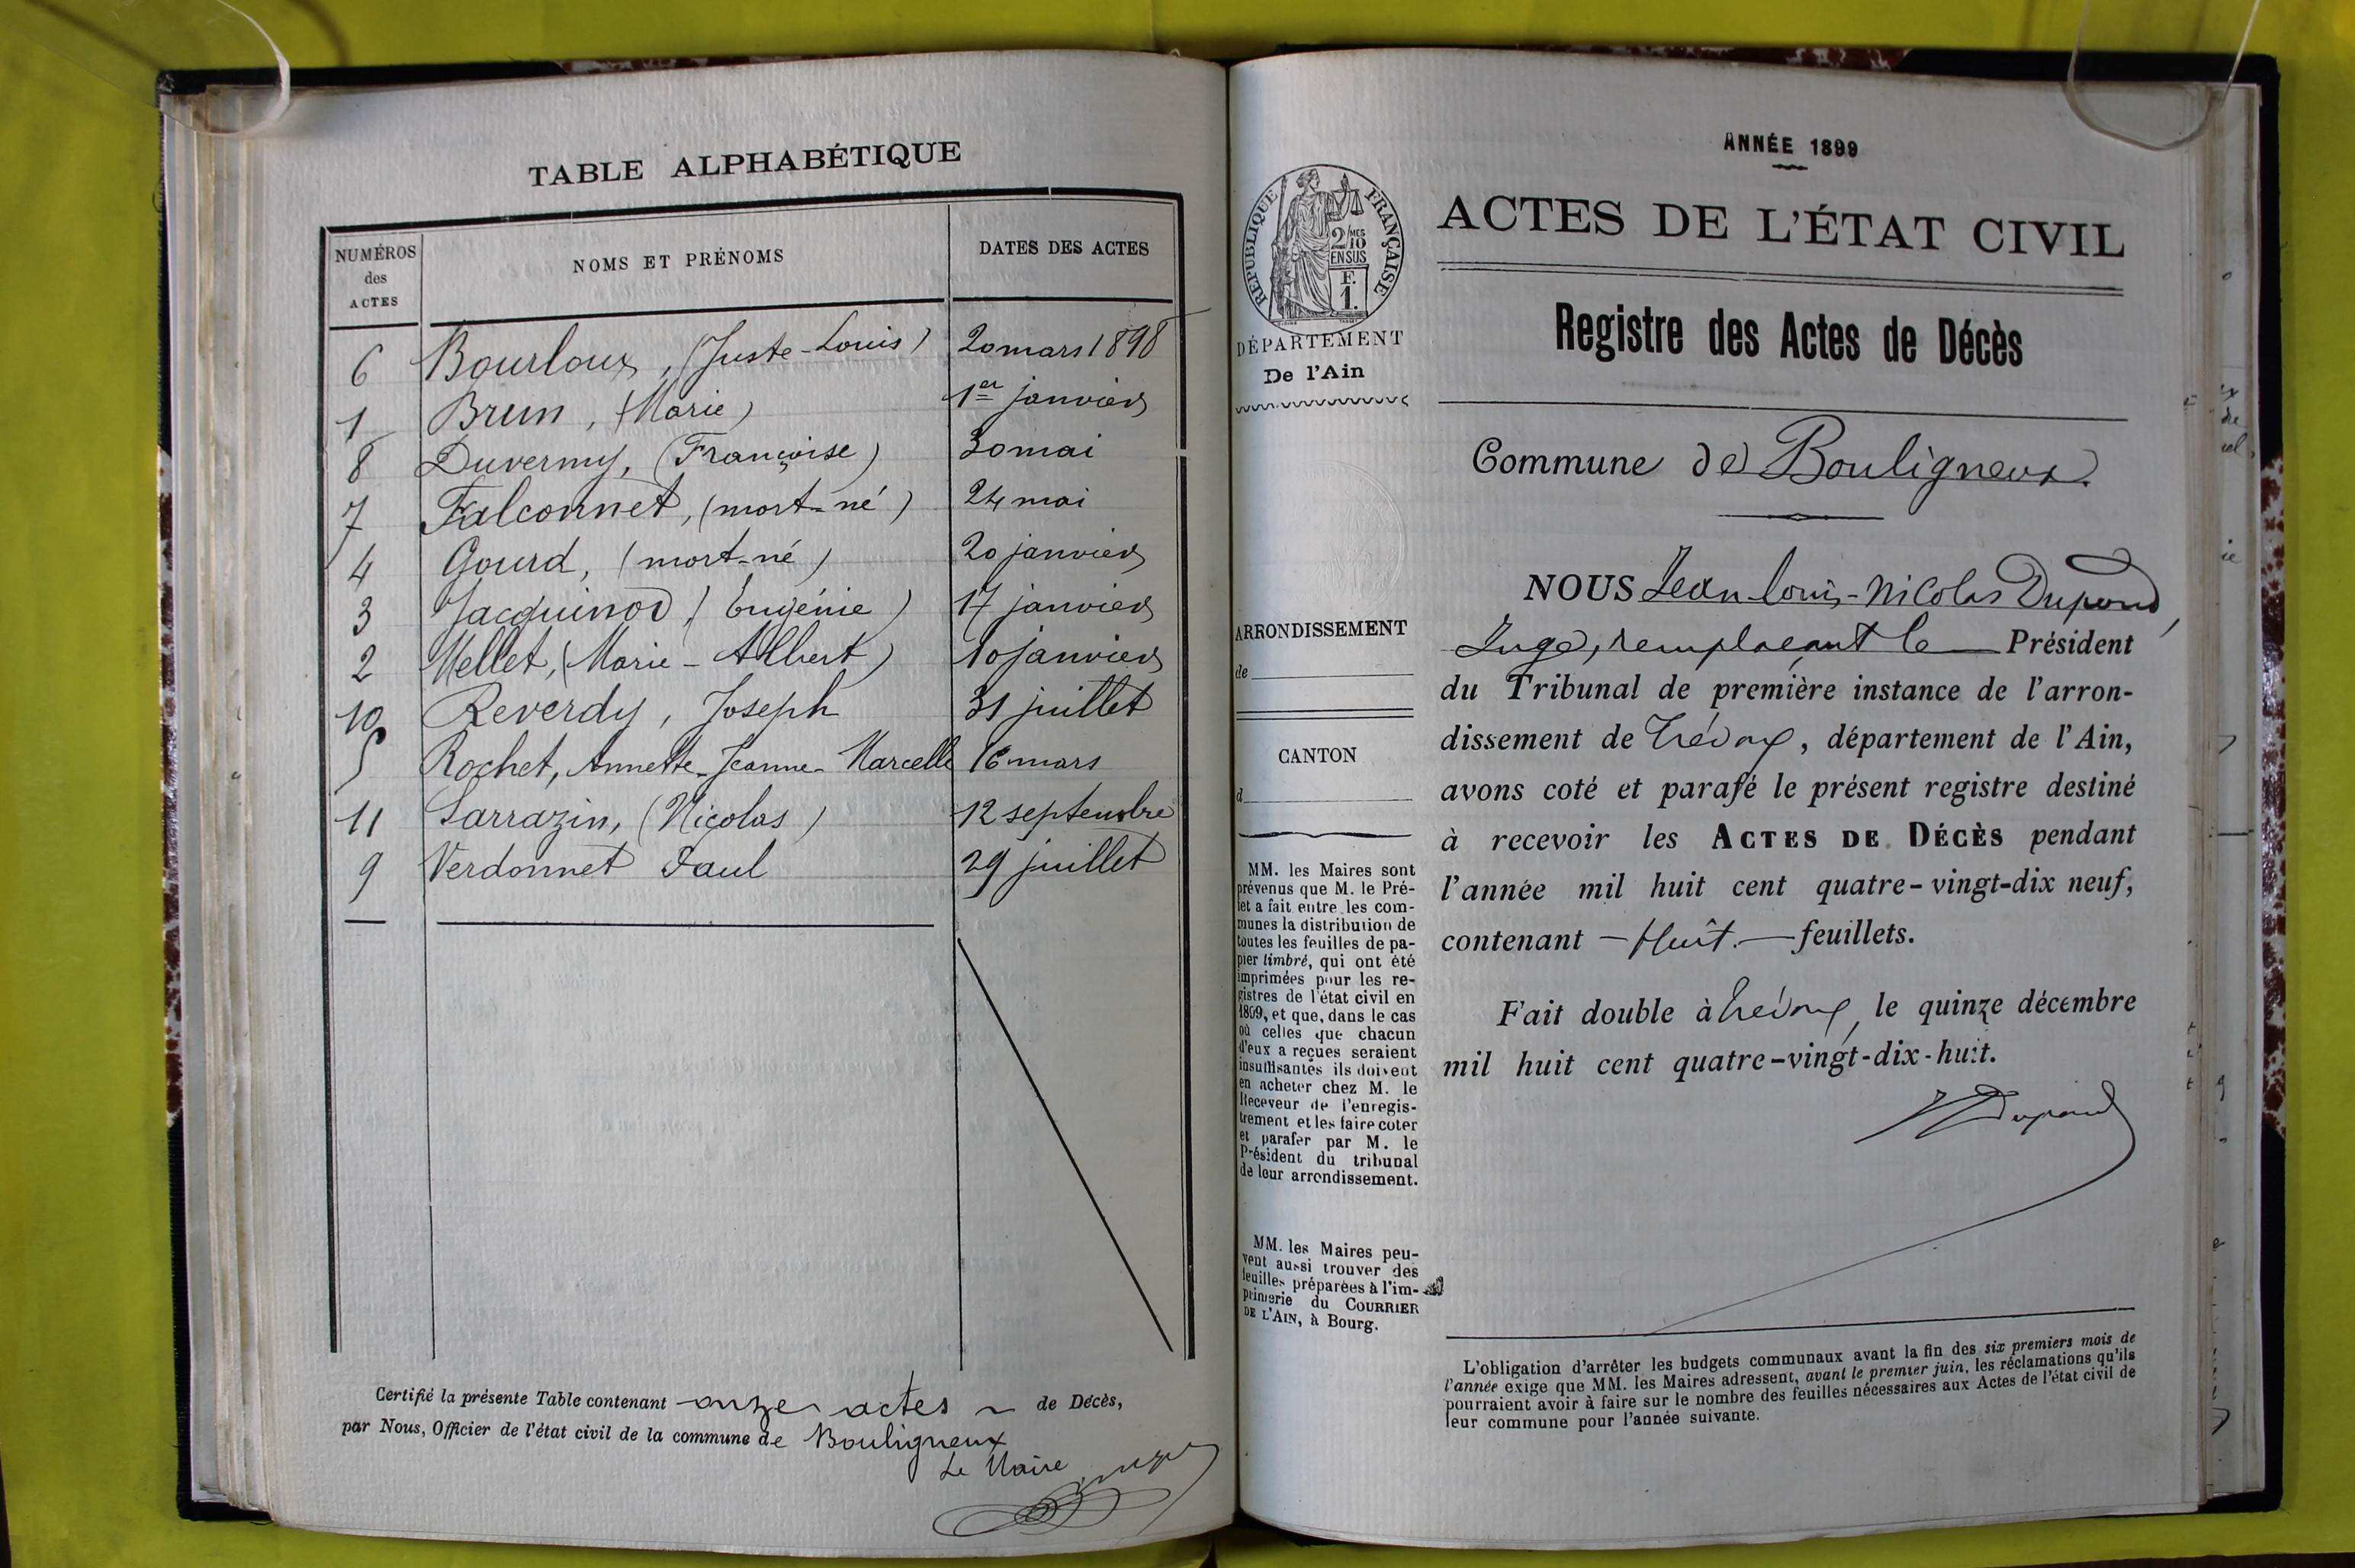 TABLE ALPHABÉTIQUE
NUMÉROS des ACTES
NOMS ET PRÉNOMS
DATES DES ACTES
6 Bourloux, (Juste-Louis) 20 mars 1898
1 Brun, (Marie) 1er janvier
8 Duverny, (Françoise) 30 mai
7 Falconnet, (mort-né) 24 mai
4 Gourd, (mort-né) 20 janvier
3 Jacquinod (Eugénie) 17 janvier
2 Mellet, (Marie-Albert) 10 janvier
10 Reverdy, Joseph 31 juillet
5 Rochet, Annette-Jeanne-Marcelle 16 mars
11 Sarrazin, (Nicolas) 12 septembre
9 Verdonnet Paul 29 juillet
Certifié la présente Table contenant onze actes de Décès,
par Nous, Officier de l'état civil de la commune de Bouligneux
Le Maire
RÉPUBLIQUE FRANÇAISE
2/MES
10
EN SUS
F.
1.
DÉPARTEMENT
De l'Ain
ARRONDISSEMENT
de
CANTON
d
MM. les Maires sont
prévenus que M. le Pré-
fet a fait entre les com-
munes la distribution de
toutes les feuilles de pa-
pier timbré, qui ont été
imprimées pour les re-
gistres de l'état civil en
1899, et que, dans le cas
où celles que chacun
d'eux a reçues seraient
insuffisantes ils doivent
en acheter chez M. le
Receveur de l'enregis-
trement et les faire coter
et parafer par M. le
Président du tribunal
de leur arrondissement.
MM. les Maires peu-
vent aussi trouver des
feuilles préparées à l'im-
primerie du COURRIER
DE L'AIN, à Bourg.
ANNÉE 1899
ACTES DE L'ÉTAT CIVIL
Registre des Actes de Décès
Commune de Bouligneux.
NOUS Jean-Louis-Nicolas Dupond,
Juge, remplaçant le Président
du Tribunal de première instance de l'arron-
dissement de Trévoux, département de l'Ain,
avons coté et parafé le présent registre destiné
à recevoir les ACTES DE DÉCÈS pendant
l'année mil huit cent quatre-vingt-dix neuf,
contenant — Huit. — feuillets.
Fait double à Trévoux, le quinze décembre
mil huit cent quatre-vingt-dix-huit.
Dupond
L'obligation d'arrêter les budgets communaux avant la fin des six premiers mois de
l'année exige que MM. les Maires adressent, avant le premier juin, les réclamations qu'ils
pourraient avoir à faire sur le nombre des feuilles nécessaires aux Actes de l'état civil de
leur commune pour l'année suivante.